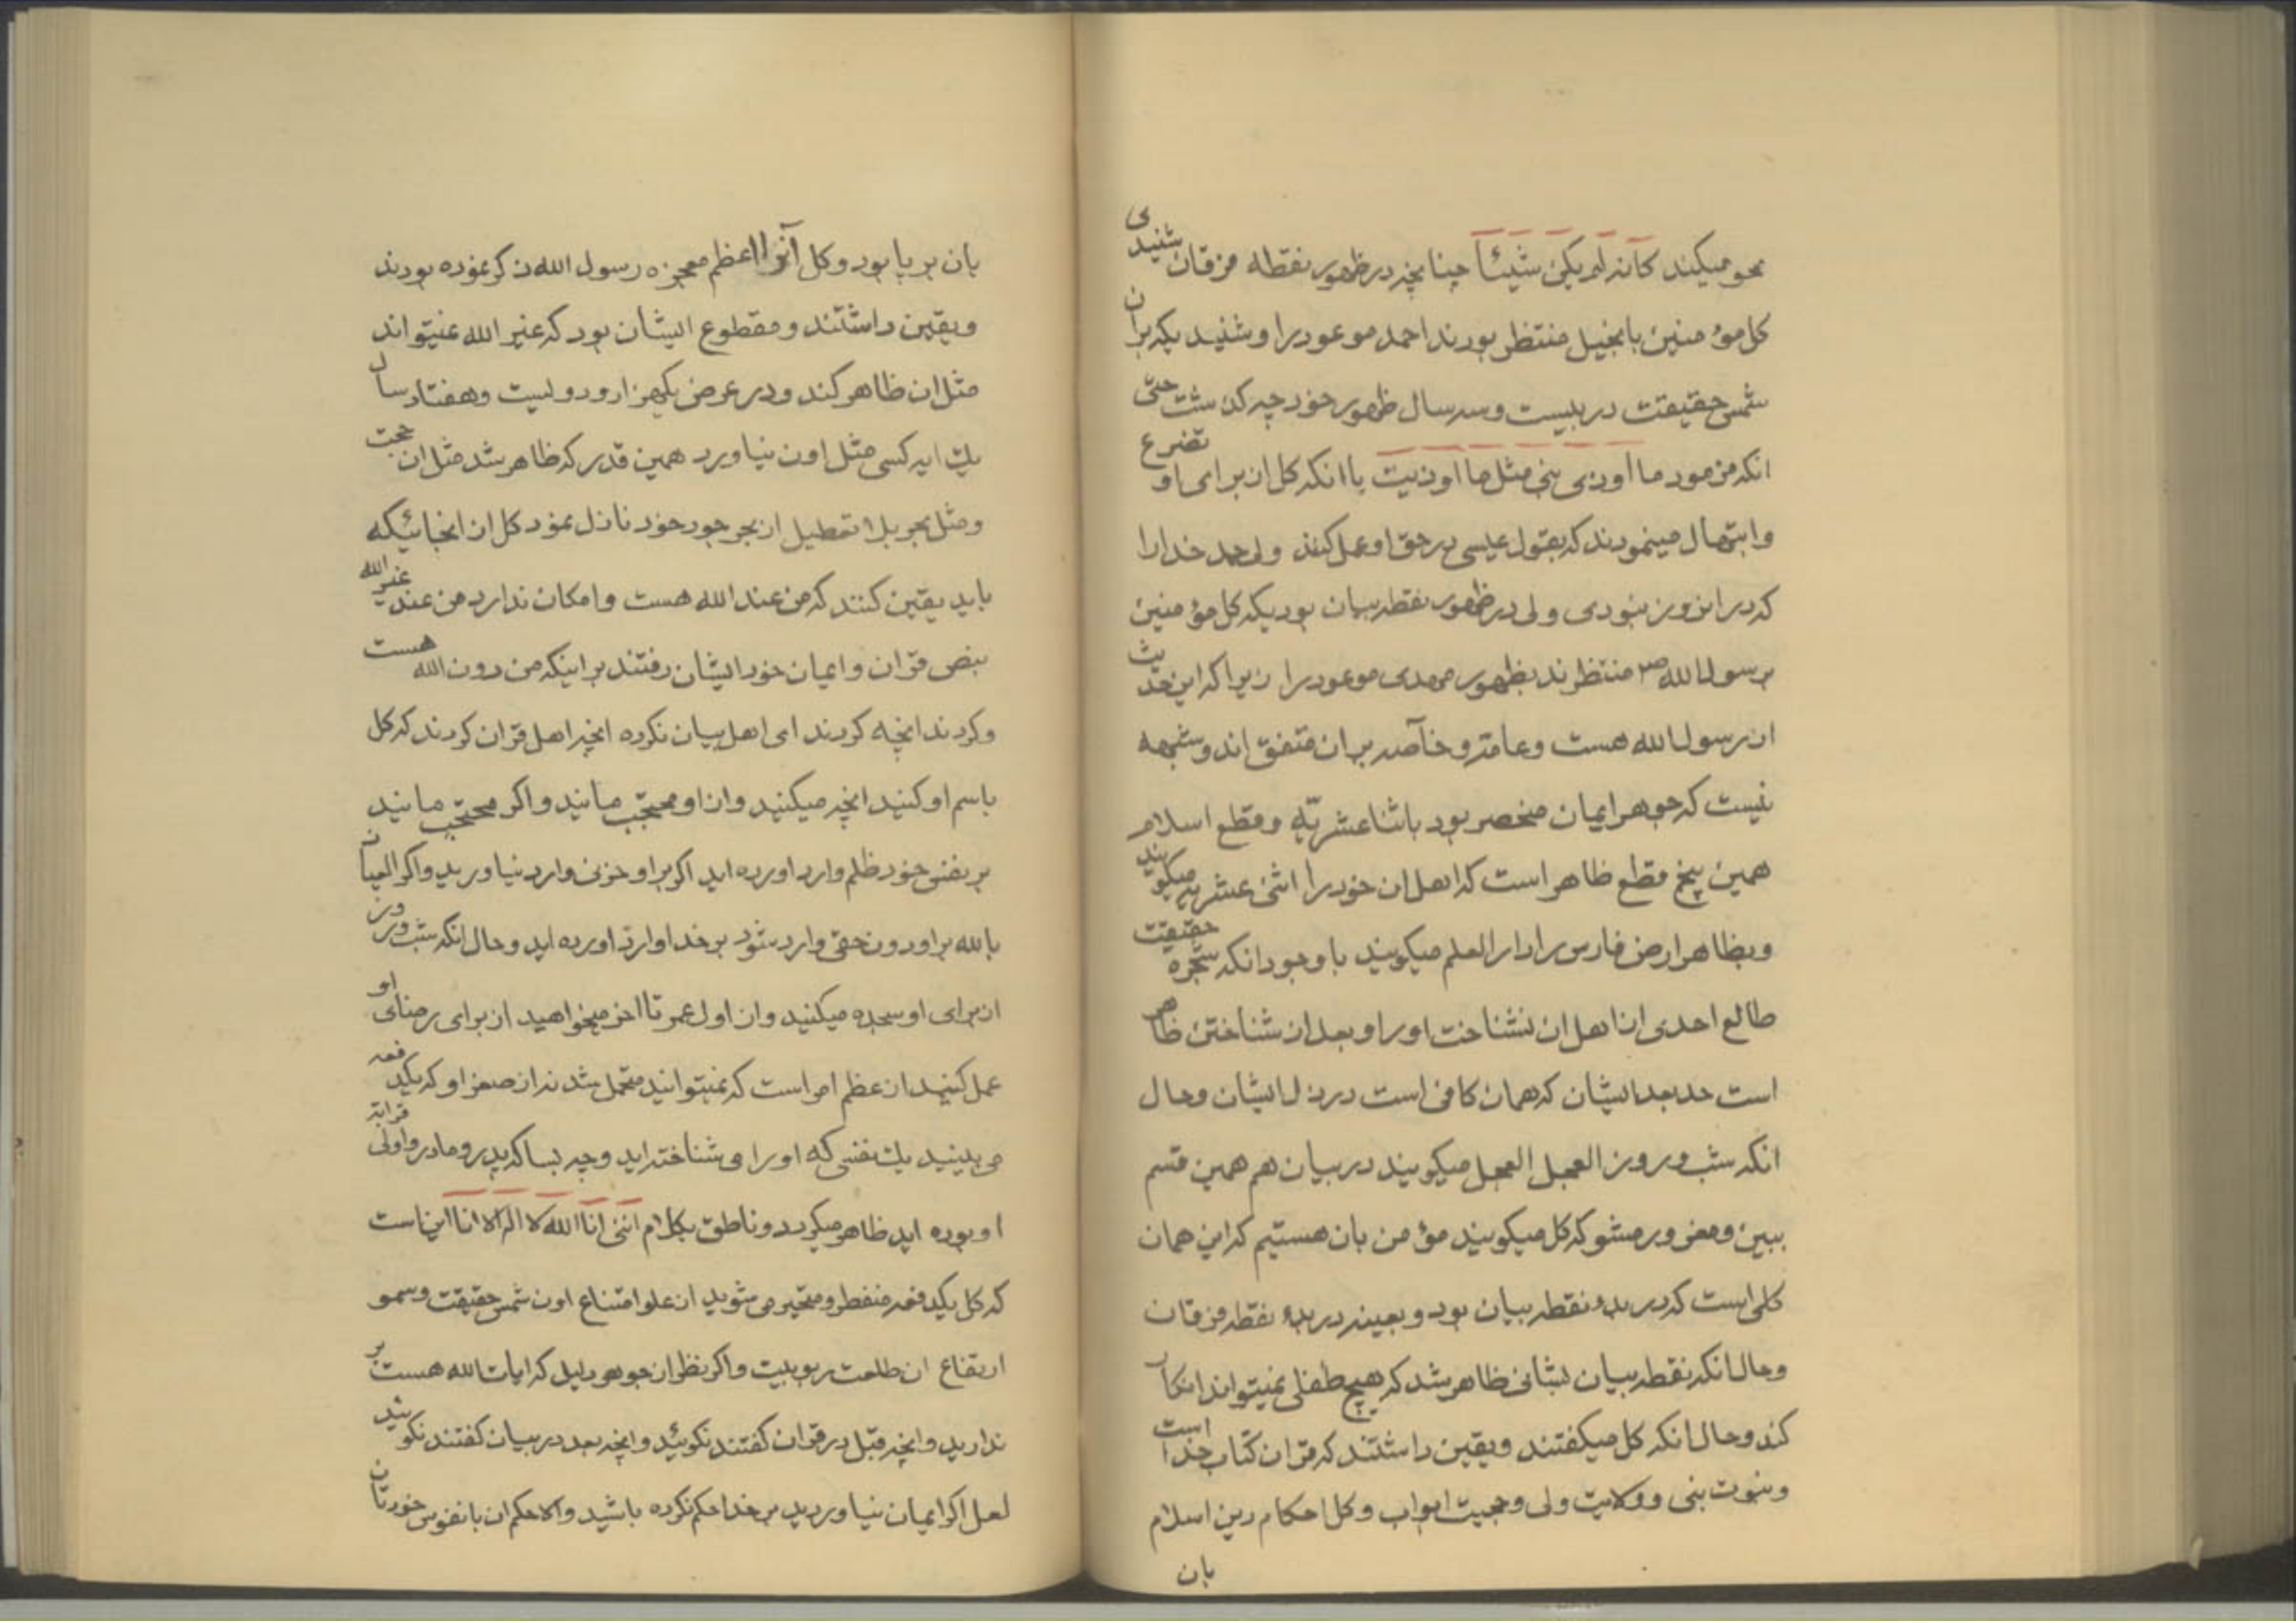 محو میکند کانه لم یکن شیئاً چنانچه در ظهور نقطه فرقان شنیدی
کل مؤمنین بانجیل منتظر بودند احمد موعود را و شنیدیکه بران
شمس حقیقت در بیست و سه سال ظهور خود چه گذشت حتی
انکه فرمود ما اوذی نبی مثل ما اوذیت با انکه کل از برای او تضرع
وابتهال مینمودند که بقول عیسی در حق او عمل کنند ولی حمد خدا را
که در ان روز نبودی ولی در ظهور نقطه بیان بودیکه کل مؤمنین
برسول الله ص منتظرند بظهور مهدی موعود را زیرا که این حدیث
از رسول الله هست وعامّه وخاصّه بران متفق اند وشبهه
نیست که جوهر ایمان منحصر بود باثناعشریّه وقطع اسلام
همین پنج قطع ظاهر است که اهل ان خود را اثنی عشریه میگویند
وبظاهر ارض فارس را دار العلم میگویند با وجود انکه شجره حقیقت
طالع احدی از اهل ان نشناخت اورا وبعد از شناختن ظاهر
است حد بعد ایشان که همان کافی است در ذل ایشان وحال
انکه شب وروز العجل العجل میگویند در بیان هم همین قسم
ببین ومغرور مشو که کل میگویند مؤمن بان هستیم که این همان
کلی است که در بدء نقطه بیان بود وبعینه در بدء نقطه فرقان
وحال انکه نقطه بیان بشانی ظاهر شد که هیچ طفلی نمیتواند انکار
کند وحال انکه کل میگفتند ویقین داشتند که قران کتاب خدا است
ونبوت نبی وولایت ولی وحجیت ابواب وکل احکام دین اسلام
بان
بان بر پا بود وکل انرا اعظم معجزه رسول الله ذکر نموده بودند
ویقین داشتند ومقطوع ایشان بود که غیر الله نمیتواند
مثل ان ظاهر کند ودر عرض یکهزار ودویست وهفتاد سال
یک ایه کسی مثل اون نیاورد همین قدر که ظاهر شد مثل ان حجت
ومثل بحر بلا تعطیل از بحر جود خود نازل نمود کل از انجائیکه
باید یقین کنند که من عند الله هست وامکان ندارد من عند غیر الله
بنص قران وایمان خود ایشان رفتند بر اینکه من دون الله هست
وکردند انچه کردند ای اهل بیان نکرده انچه اهل قران کردند که کل
باسم او کنید انچه میکنید واز او محتجب مانید واگر محتجب مانید
بر نفس خود ظلم وارد اورده اید اگر بر او حزنی وارد نیاورید واگر العیاذ
بالله بر او دون حقی وارد شود بر خدا وارد اورده اید وحال انکه شب وروز
از برای او سجده میکنید واز اول عمر تا اخر میخواهید از برای رضای او
عمل کنید از عظم امر است که نمیتوانید متحمل شد نه از صغر او که یکدفعه
می بینید یک نفسی که اورا می شناخته اید وچه بسا که پدر ومادر واولی قرابة
او بوده اید ظاهر میگردد وناطق بکلام اننی انا الله لا اله الا انا این است
که کل یکدفعه منفطر ومتحیر می شوید از علو امتناع اون شمس حقیقت وسمو
ارتفاع ان طلعت ربوبیت واگر نظر از جوهر دلیل که ایات الله هست بر
ندارید وانچه قبل در قران گفتند نگوئید وانچه بعد در بیان گفتند نگوئید
لعل اگر ایمان نیاوردید بر خدا حکم نکرده باشید والا حکم ان بانفوس خودتان